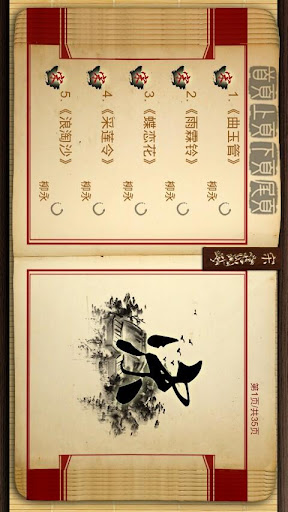 首頁 上頁 下頁 尾頁
1.《曲玉管》 柳永
2.《雨霖铃》 柳永
3.《蝶恋花》 柳永
4.《采莲令》 柳永
5.《浪淘沙》 柳永
第1页/共35页